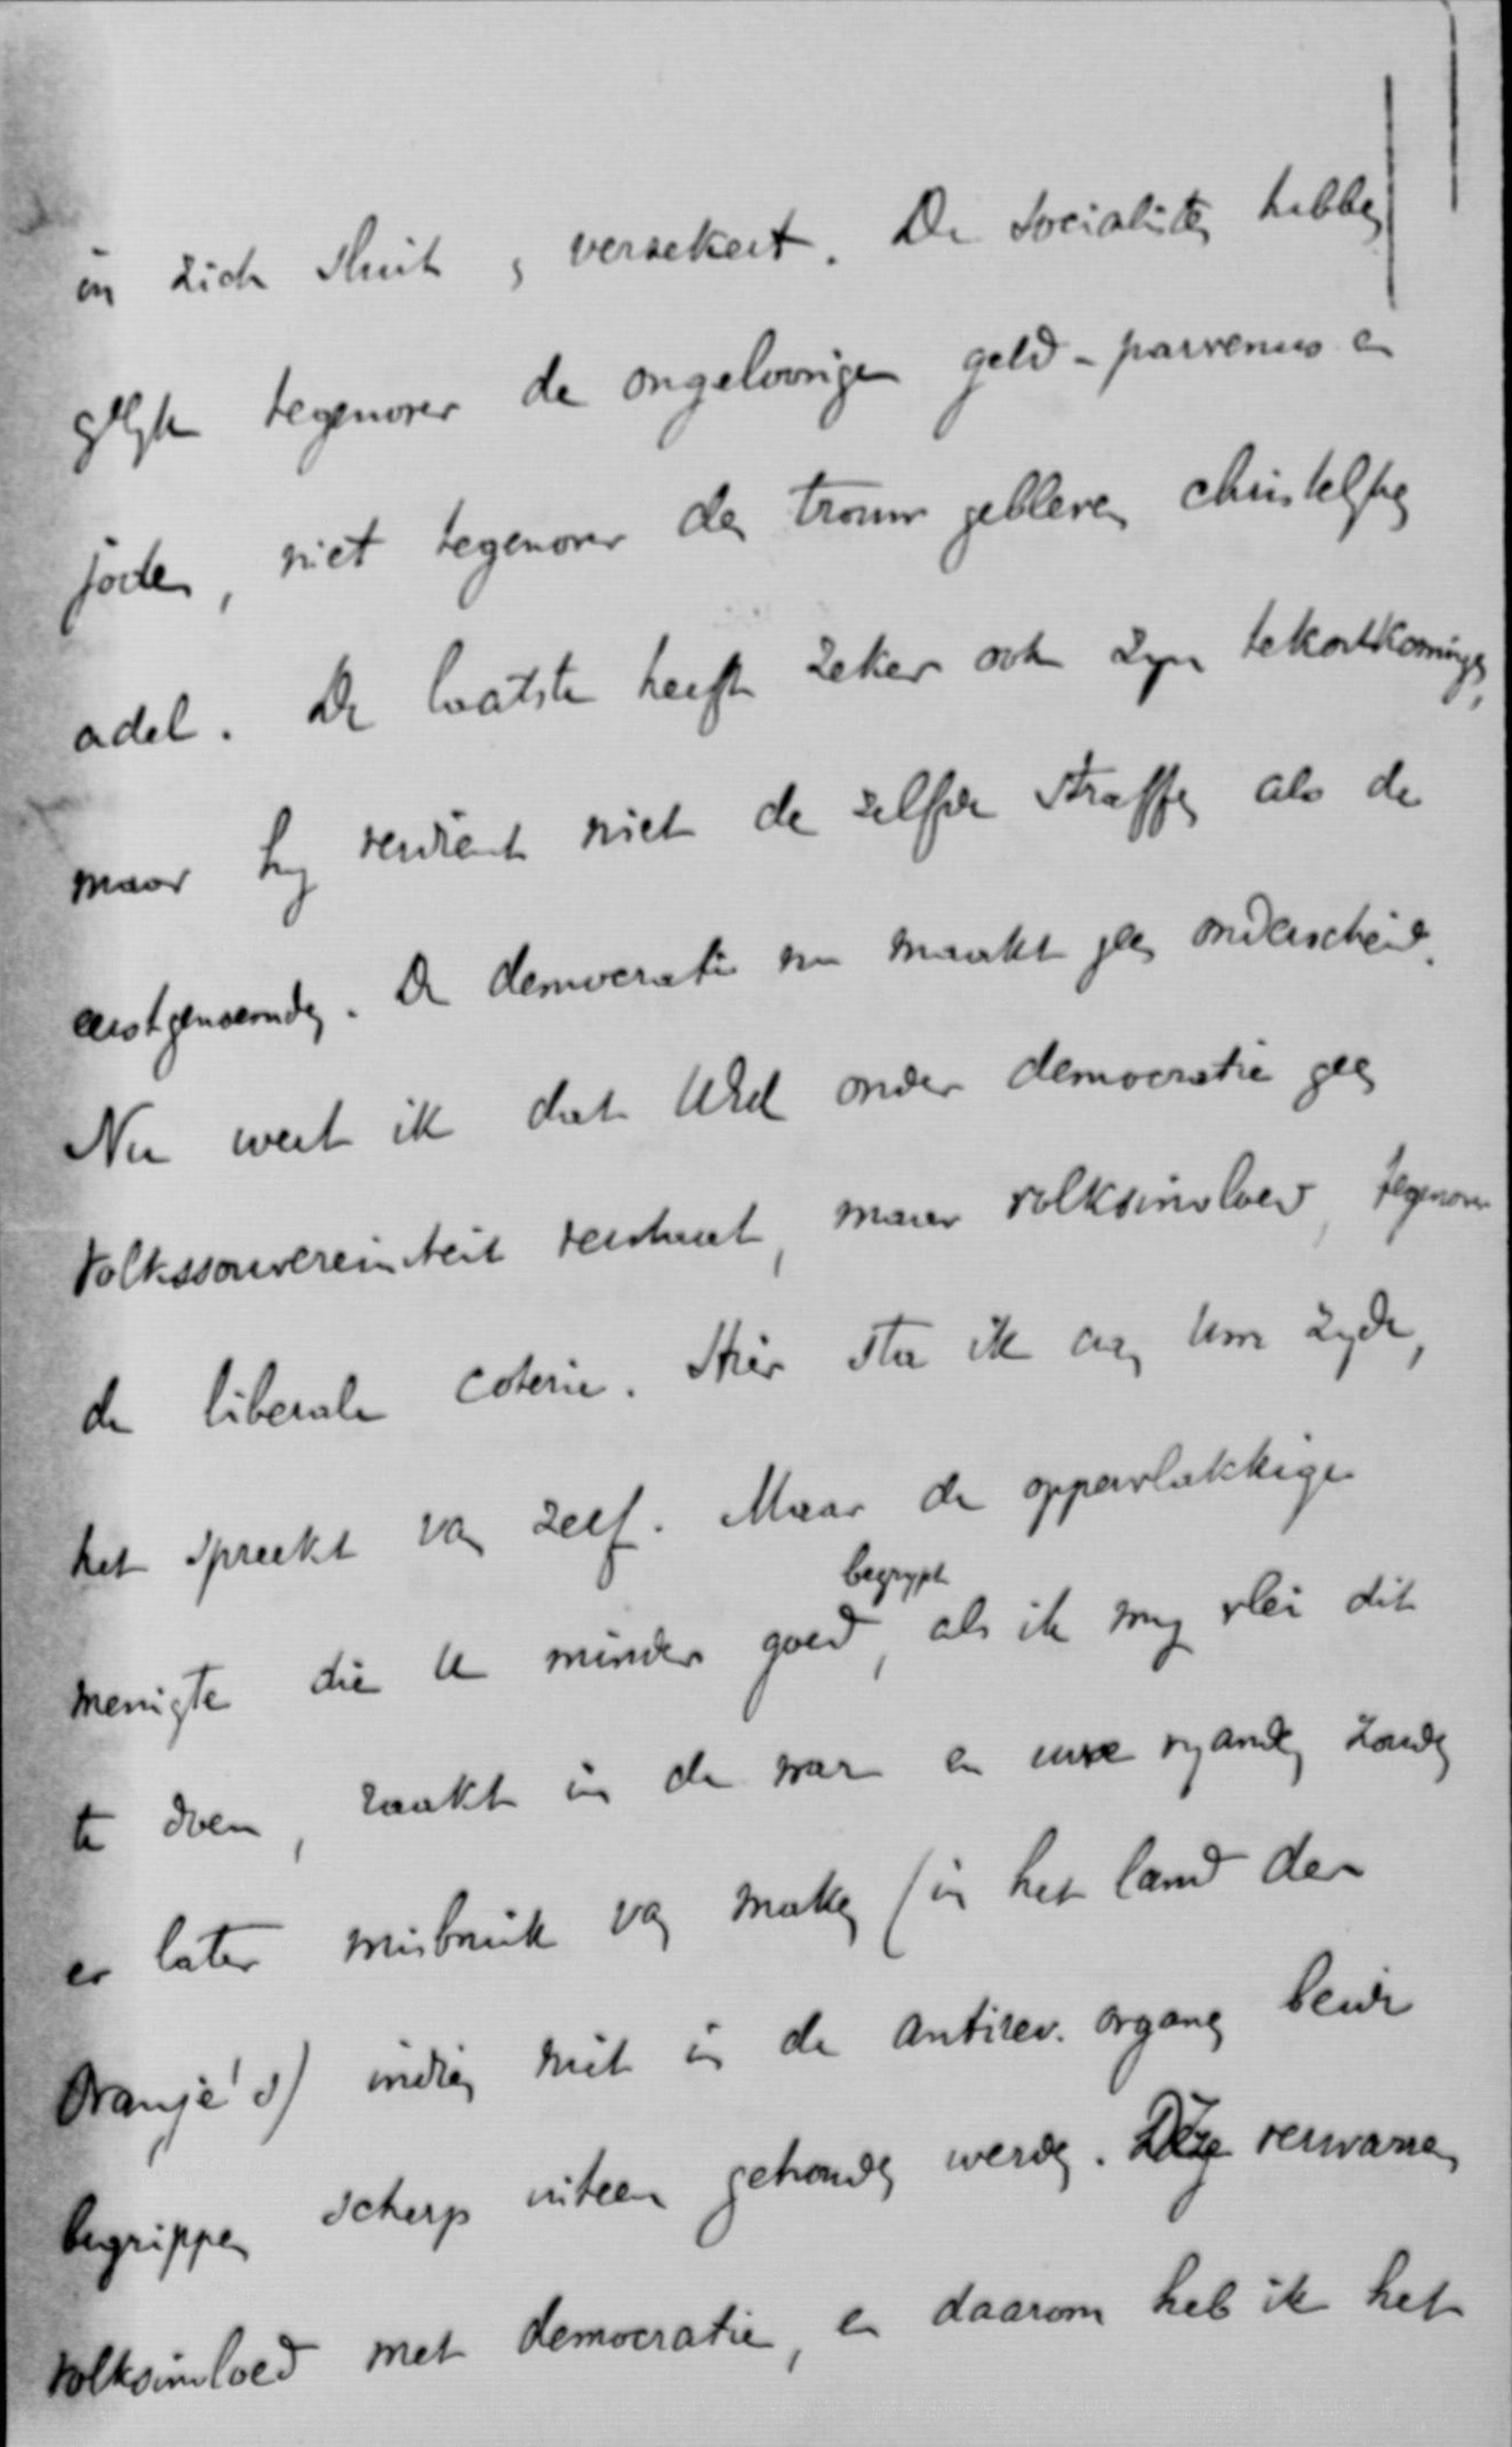 in zich sluit, verzekert. De socialisten hebben
gelijk tegenover de ongeloovigen geld-parvenus en
joden, niet tegenover den trouw gebleven christelijken
adel. De laatste heeft zeker ook zyn tekortkomingen,
maar hy verdient niet de zelfde straffen als de
eerstgenoemden. De democratie nu maakt geen onderscheid.
Nu weet ik dat UEd onder democratie geen
volkssouvereiniteit verstaat, maar volksinvloed, tegenover
de liberale coterie. Hier sta ik aan Uwe zyde,
het spreekt van zelf. Maar de oppervlakkige
menigte die U minder goed begrypt, als ik my vlei dit
te doen, raakt in de war en uwe vyanden zouden
er later misbruik van maken (in het land der
Oranje's) indien niet in de antirev. organen beide
begrippen scherp uiteen gehouden werden. Deze verwarren
volksinvloed met democratie, en daarom heb ik het